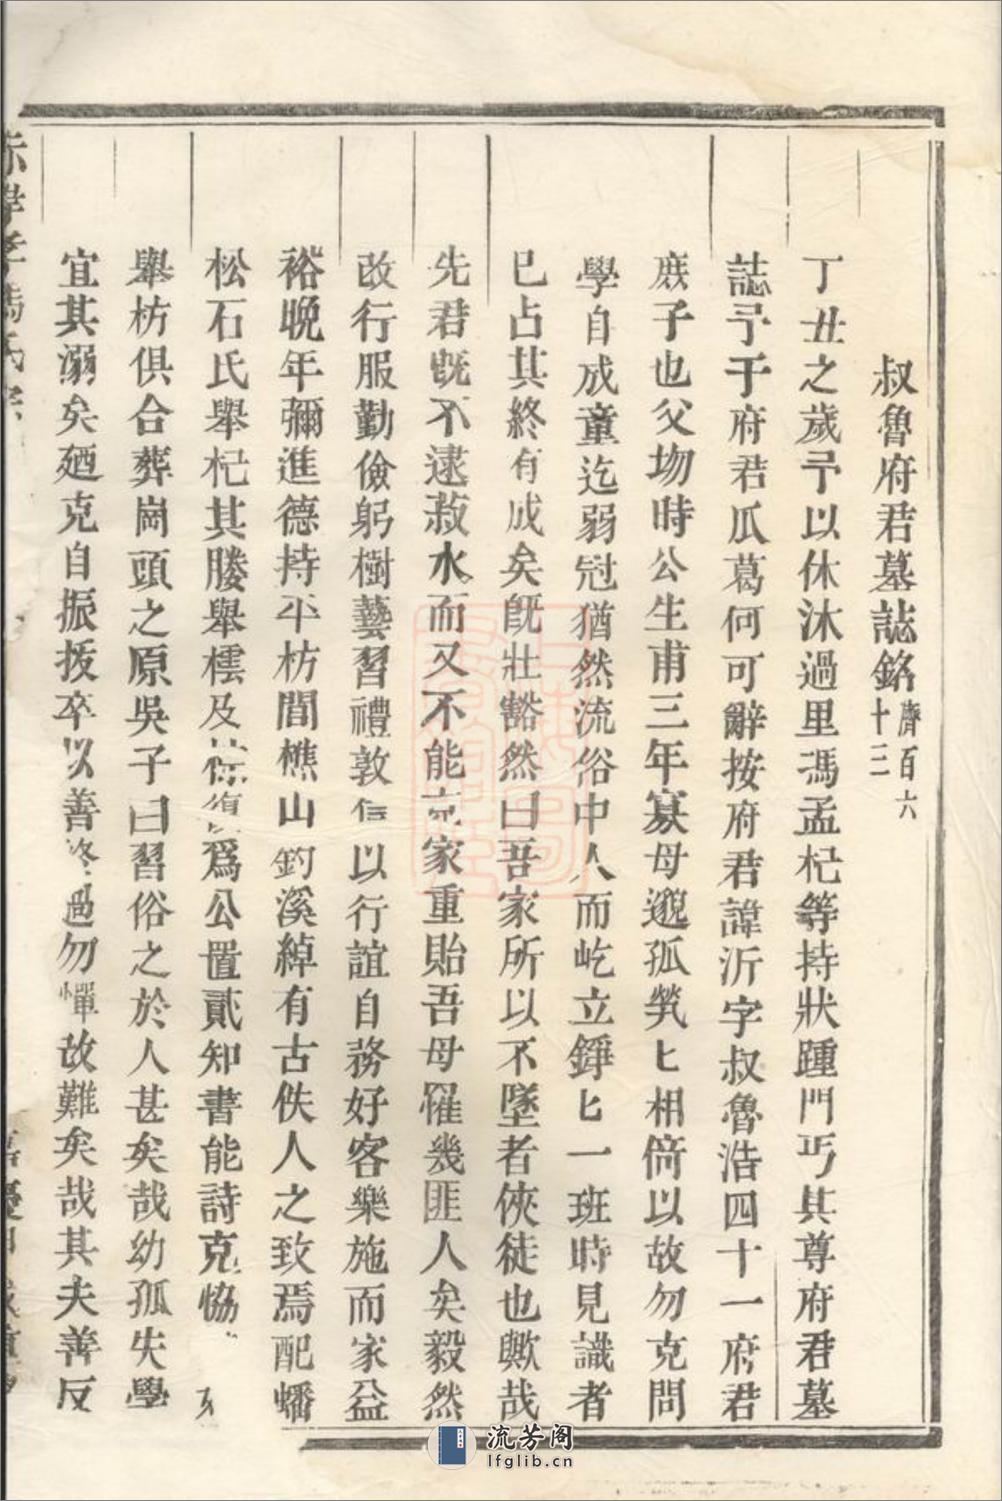 叔魯府君墓誌銘 濟百六十三
丁丑之歲予以休沐過里馮孟杞等持狀踵門丐其尊府君墓
誌予于府君瓜葛何可辭按府君諱沂字叔魯浩四十一府君
庶子也父歾時公生甫三年寡母邈孤煢匕相倚以故勿克問
學自成童迄弱冠猶然流俗中人而屹立錚匕一班時見識者
已占其終有成矣旣壯豁然曰吾家所以不墜者俠徒也歟哉
先君旣不逮菽水而又不能克家重貽吾母罹幾匪人矣毅然
改行服勤儉躬樹藝習禮敦信以行誼自務好客樂施而家益
裕晚年彌進德持平枋間樵山釣溪綽有古佚人之致焉配蟠
松石氏舉杞其媵舉橒及 復爲公置貳知書能詩克協
舉枋俱合葬崗頭之原吳子曰習俗之於人甚矣哉幼孤失學
宜其溺矣廼克自振拔卒以善終過勿憚故難矣哉其夫善反
赤岸孝馮氏宗
流芳阁
lfglib.cn